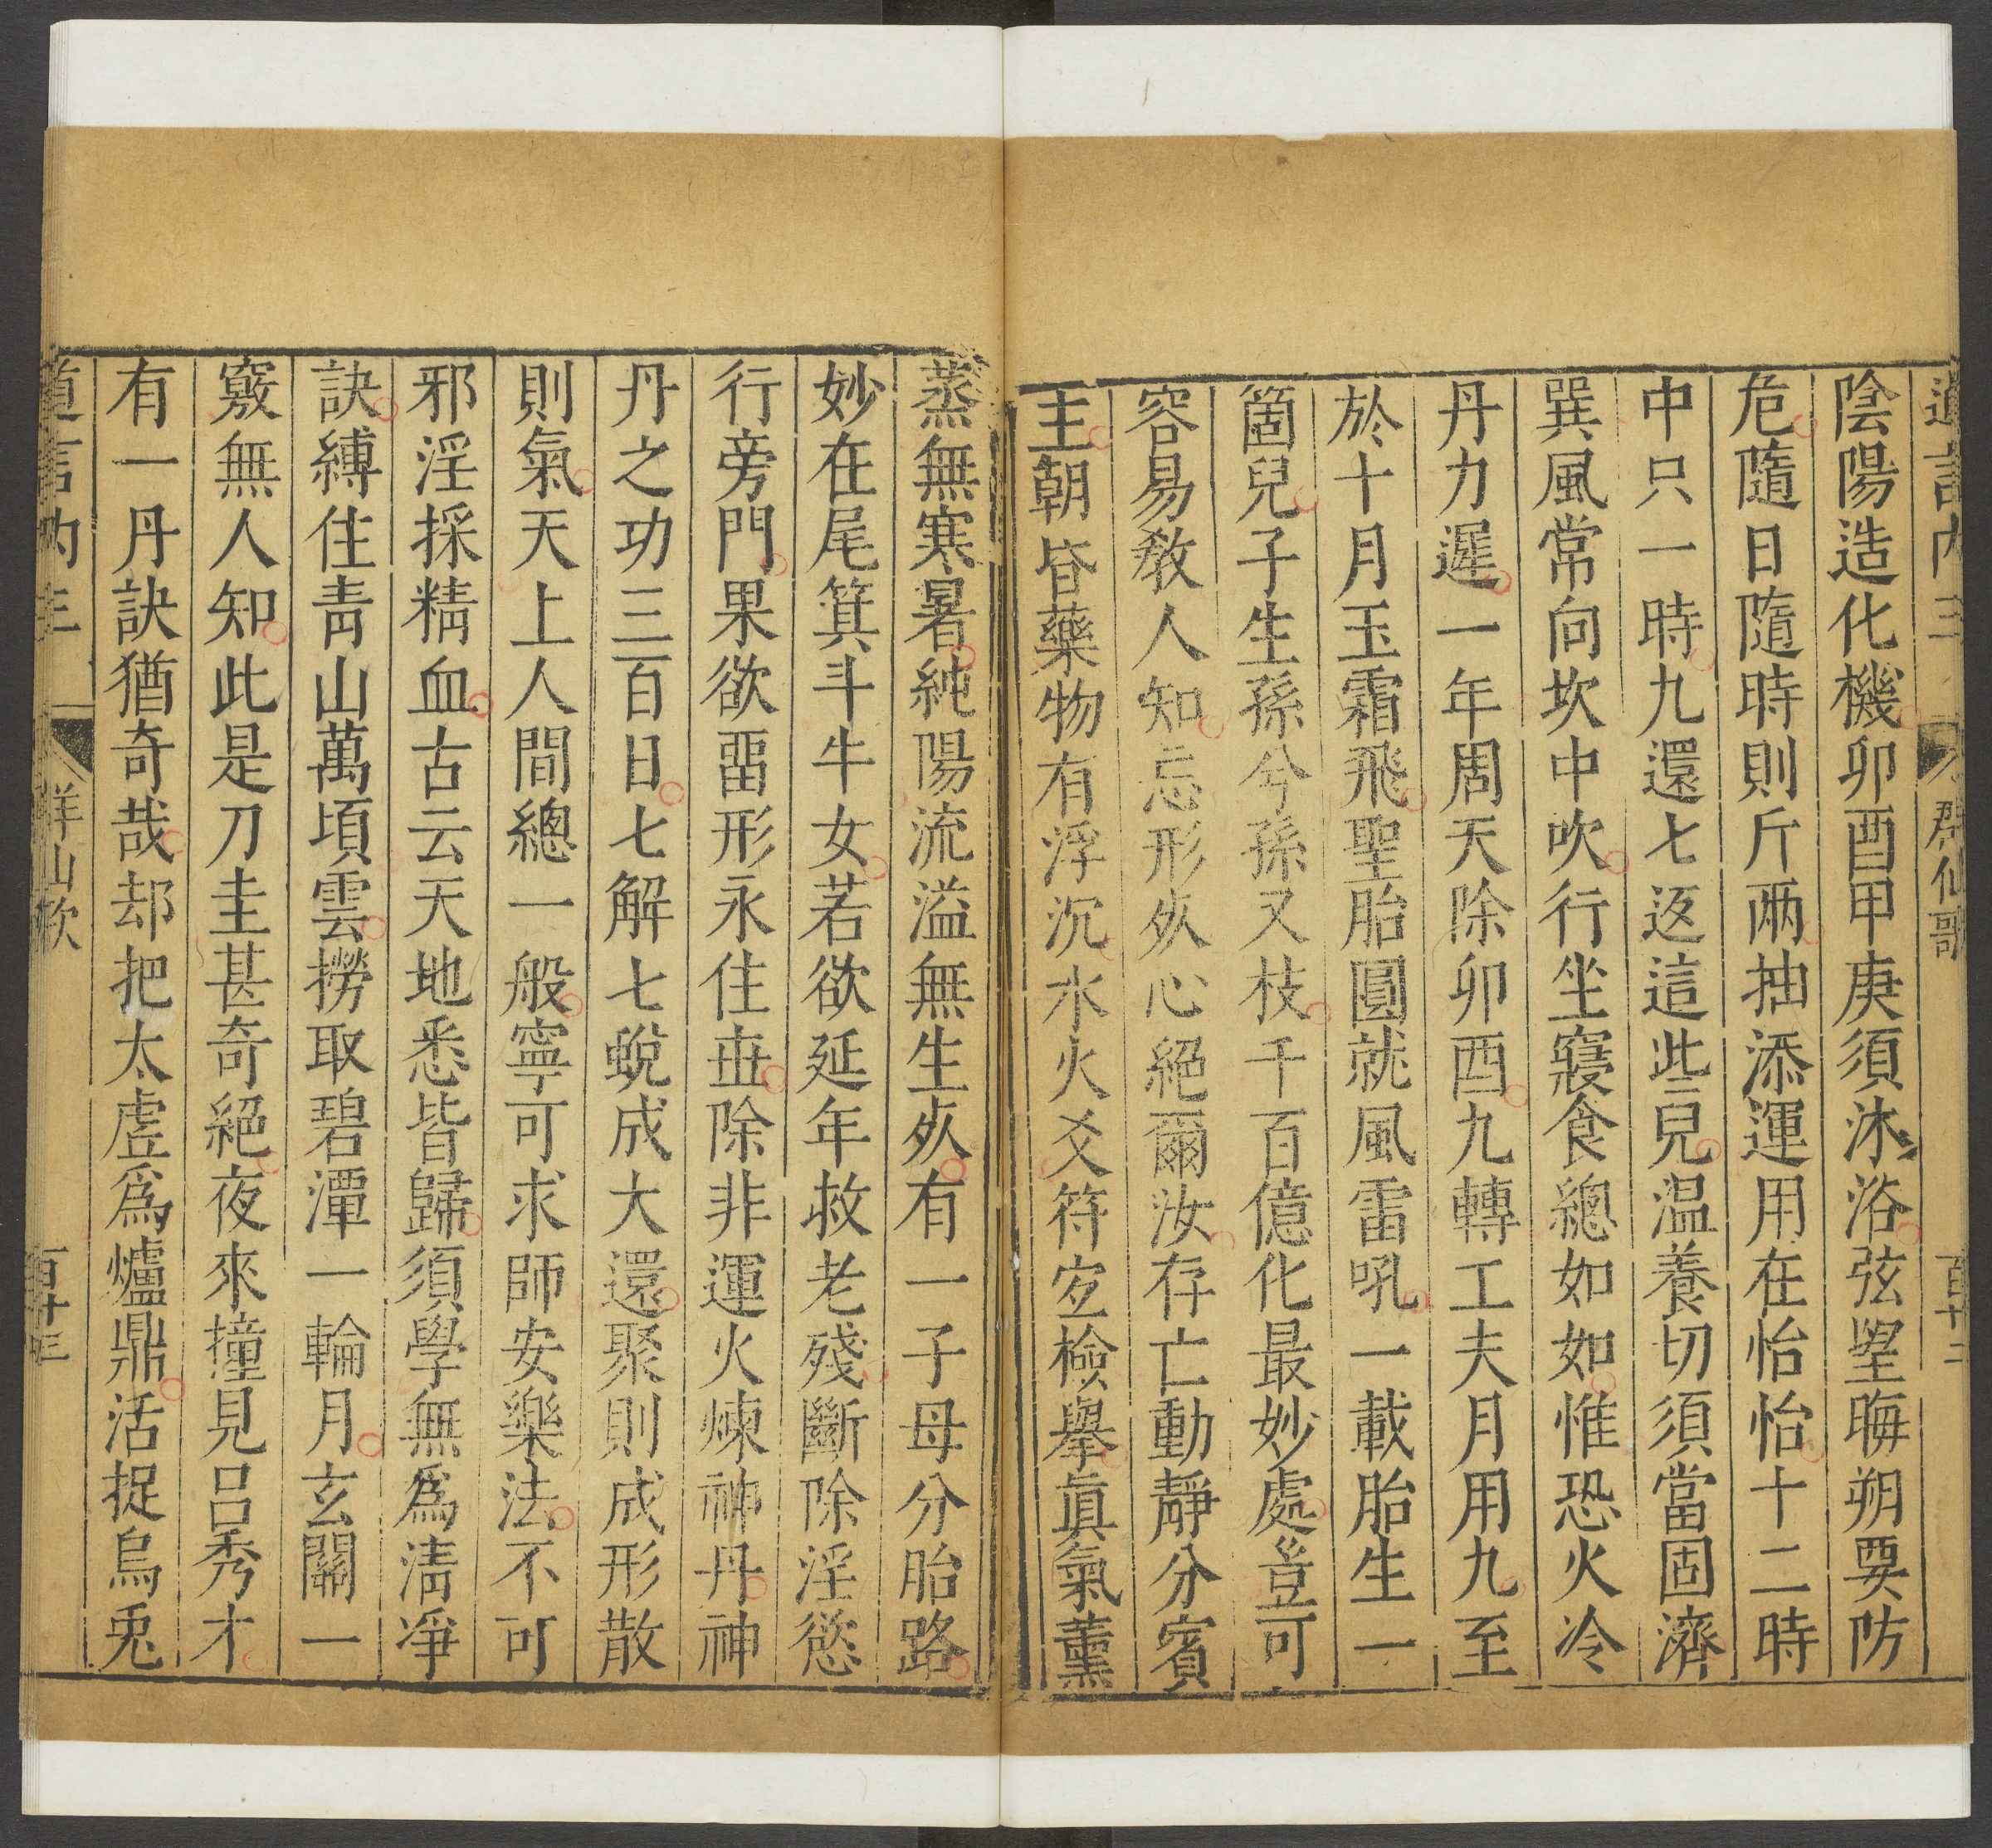 道言內三 群仙歌 百十二
陰陽造化機卯酉甲庚須沐浴弦望晦朔要防
危隨日隨時則斤兩抽添運用在怡怡十二時
中只一時九還七返這些兒温養切須當固濟
巽風常向坎中吹行坐寢食總如如惟恐火冷
丹力遲一年周天除卯酉九轉工夫月用九至
於十月玉霜飛聖胎圓就風雷吼一載胎生一
箇兒子生孫兮孫又枝千百億化最妙處豈可
容易敎人知忘形灰心絕爾汝存亡動靜分賓
主朝昏藥物有浮沉水火爻符宐檢舉眞氣薰
蒸無寒暑純陽流溢無生灰有一子母分胎路
妙在尾箕斗牛女若欲延年救老殘斷除淫慾
行旁門果欲畱形永住世除非運火煉神丹神
丹之功三百日七解七蛻成大還聚則成形散
則氣天上人間總一般寧可求師安樂法不可
邪淫採精血古云天地悉皆歸須學無爲淸凈
訣縛住靑山萬頃雲撈取碧潭一輪月玄關一
竅無人知此是刀圭甚奇絕夜來撞見呂秀才
有一丹訣猶奇哉却把太虛爲爐鼎活捉烏兎
道言內三 百十三